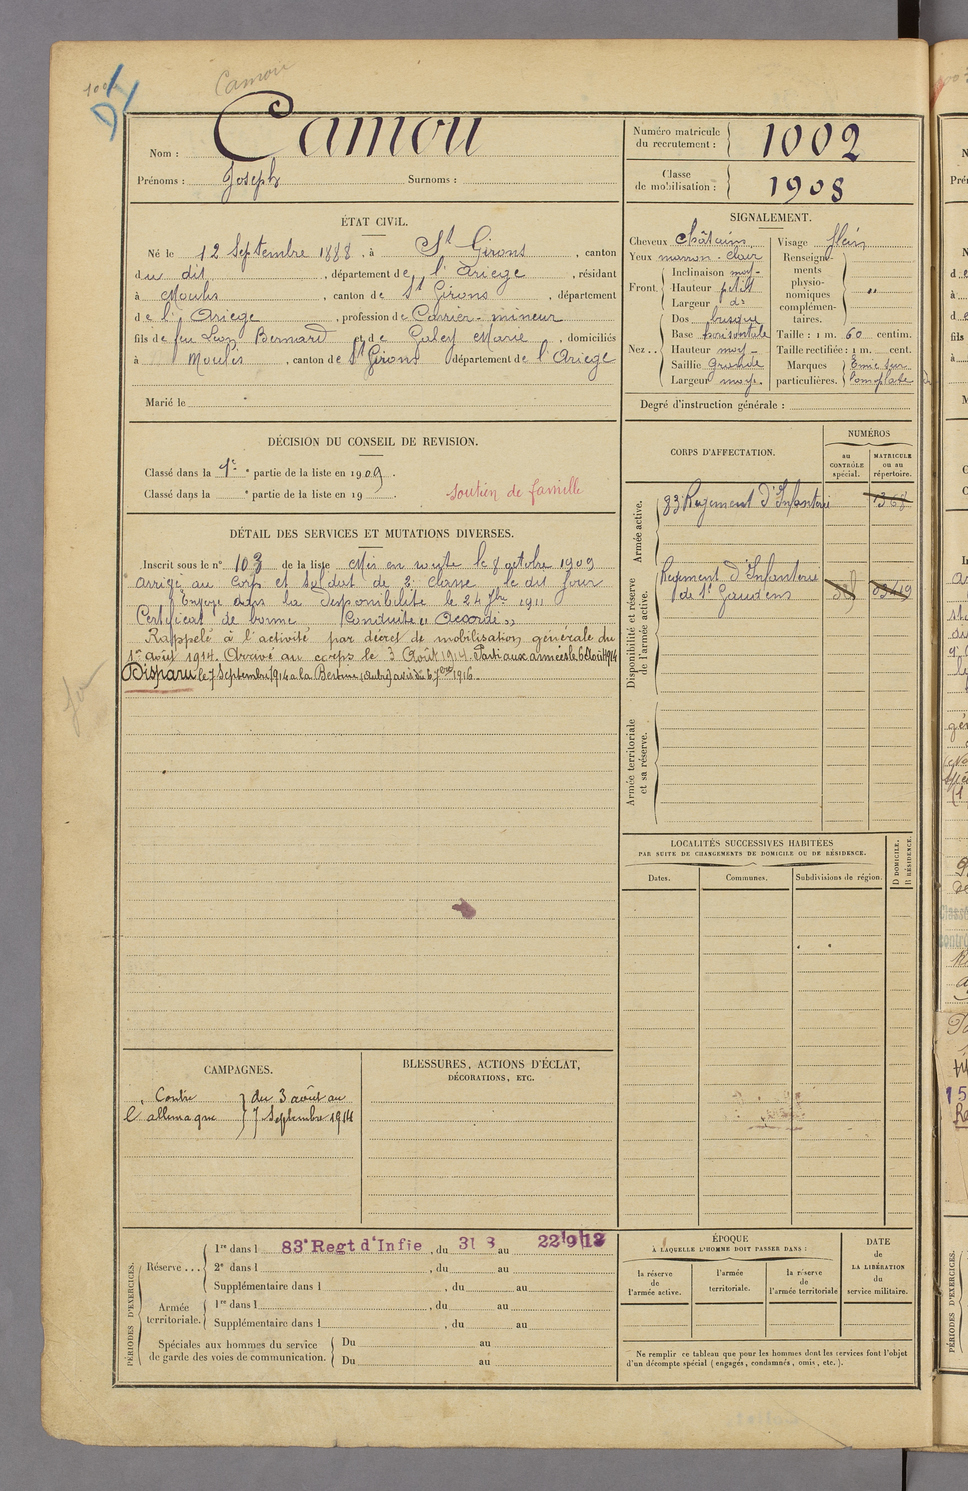 Camou
Nom : Camou
Prénoms : Joseph Surnoms :
Numéro matricule du recrutement : 1002
Classe de mobilisation : 1908
ÉTAT CIVIL.
Né le 12 Septembre 1888, à St Girons, canton
du dit, département de l'Ariege, résidant
à Moulis, canton de St Girons, département
de l'Ariege, profession de Carrier-mineur
fils de feu Léon Bernard et de Galey Marie, domiciliés
à Moulis, canton de St Girons département de l'Ariege
Marié le
SIGNALEMENT.
Cheveux châtains
Yeux marron-clair
Front. Inclinaison moy-
Hauteur petit
Largeur do
Nez.. Dos busqué
Base horizontale
Hauteur moy-
Saillie Grande
Largeur moy.
Visage plein
Renseignements physionomiques complémentaires. "
Taille : 1 m. 60 centim.
Taille rectifiée : 1 m. cent.
Marques particulières.
Degré d'instruction générale :
DÉCISION DU CONSEIL DE REVISION.
Classé dans la 1e partie de la liste en 1909.
Classé dans la e partie de la liste en 19 .
Soutien de famille
CORPS D'AFFECTATION.
NUMÉROS
au CONTRÔLE spécial.
MATRICULE ou au répertoire.
Armée active.
83 Regiment d'Infanterie 1368
Disponibilité et réserve de l'armée active.
Regiment d'Infanterie
de St Gaudens
Armée territoriale et sa réserve.
DÉTAIL DES SERVICES ET MUTATIONS DIVERSES.
Inscrit sous le n° 103 de la liste Mis en route le 8 octobre 1909
arrivé au Corps et Soldat de 2e classe le dit jour
Envoyé dans la disponibilité le 24 7bre 1911
Certificat de bonne Conduite "Accordé"
Rappelé à l'activité par décret de mobilisation générale du
1er août 1914. Arrivé au corps le 3 Août 1914. Parti aux armées le 6 Août 1914
Disparu le 7 Septembre 1914 a la Bertine (Aube) avis du 6 7bre 1916.
LOCALITÉS SUCCESSIVES HABITÉES
PAR SUITE DE CHANGEMENTS DE DOMICILE OU DE RÉSIDENCE.
Dates.
Communes.
Subdivisions de région.
D DOMICILE.
R RÉSIDENCE.
CAMPAGNES.
Contre l'allemagne } du 3 août au
7 Septembre 1914
BLESSURES, ACTIONS D'ÉCLAT,
DÉCORATIONS, ETC.
PÉRIODES D'EXERCICES.
Réserve ... 1re dans l 83e Regt d'Infie, du 31 8 au 22 9 12
2e dans l , du au
Supplémentaire dans l , du au
Armée territoriale. 1re dans l , du au
Supplémentaire dans l , du au
Spéciales aux hommes du service de garde des voies de communication. Du au
Du au
ÉPOQUE
À LAQUELLE L'HOMME DOIT PASSER DANS :
la réserve de l'armée active.
l'armée territoriale.
la réserve de l'armée territoriale
DATE de LA LIBÉRATION du service militaire.
Ne remplir ce tableau que pour les hommes dont les services font l'objet
d'un décompte spécial (engagés, condamnés, omis, etc.).